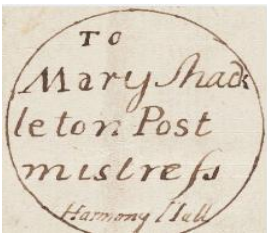 TO
Mary Shack
leton Post
mistreſs
Harmony Hall